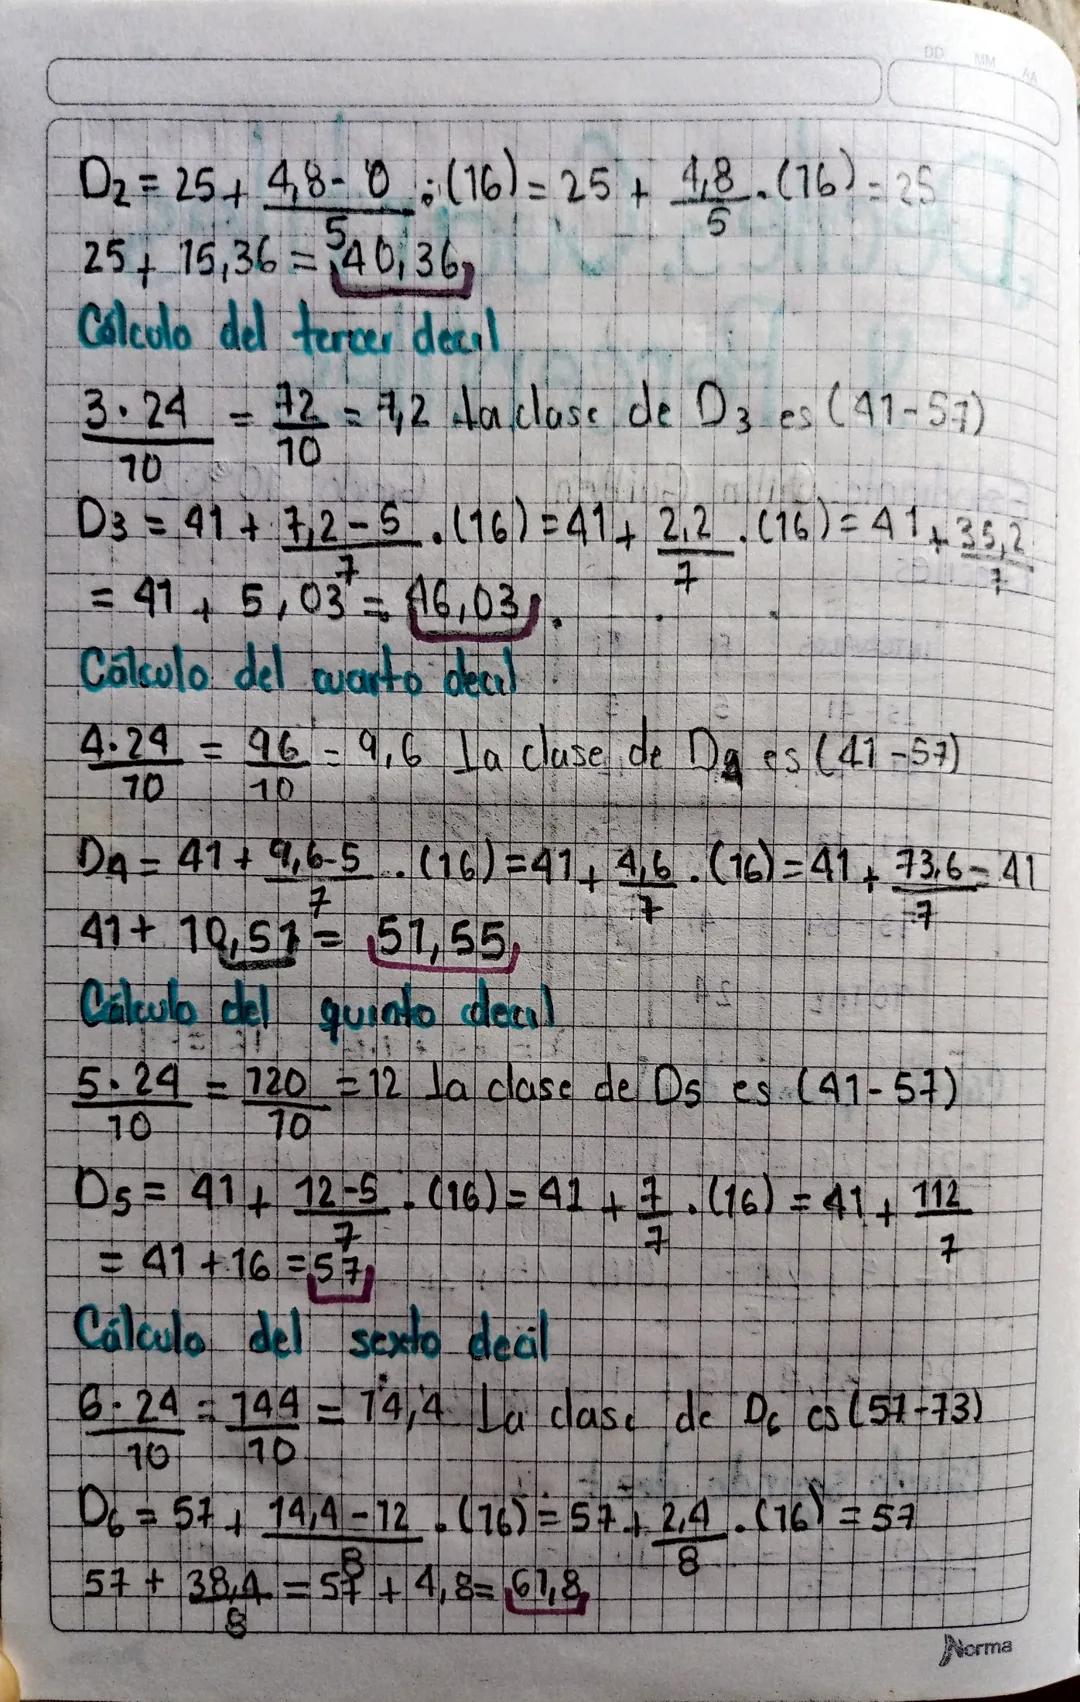 DD MM AA
D2 = 25 + (4,8 - 0)/5 · (16) = 25 + 4,8/5 · (16) = 25
25 + 15,36 = 40,36
Cálculo del tercer decil
3·24/10 = 72/10 = 7,2 La clase de D3 es (41-57)
D3 = 41 + (7,2-5)/7 · (16) = 41 + 2,2/7 · (16) = 41 + 35,2/7
= 41 + 5,03 = 46,03
Cálculo del cuarto decil
4·24/10 = 96/10 = 9,6 La clase de D4 es (41-57)
D4 = 41 + (9,6-5)/7 · (16) = 41 + 4,6/7 · (16) = 41 + 73,6/7 = 41
41 + 10,51 = 51,55
Cálculo del quinto decil
5·24/10 = 120/10 = 12 La clase de D5 es (41-57)
D5 = 41 + (12-5)/7 · (16) = 41 + 7/7 · (16) = 41 + 112/7
= 41 + 16 = 57
Cálculo del sexto decil
6·24/10 = 144/10 = 14,4 La clase de D6 es (57-73)
D6 = 57 + (14,4-12)/8 · (16) = 57 + 2,4/8 · (16) = 57
57 + 38,4/8 = 57 + 4,8 = 61,8
Norma